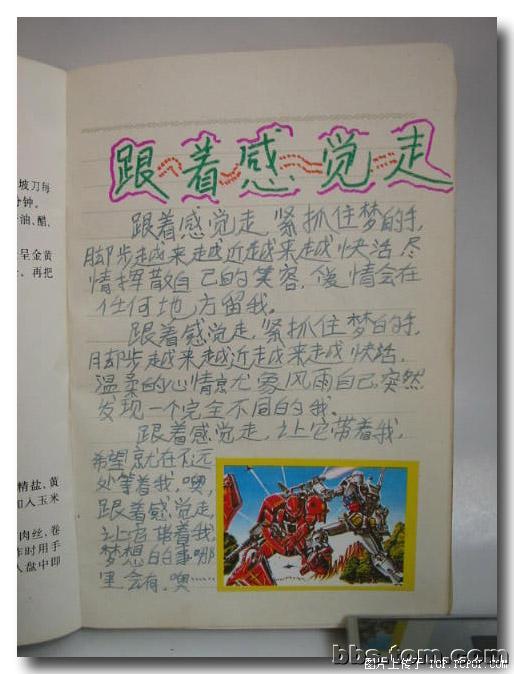 跟着感觉走
跟着感觉走,紧抓住梦的手,
脚步越来越近越来越快活,尽
情挥散自己的笑容,傻情会在
任何地方留我。
跟着感觉走,紧抓住梦的手,
脚步越来越近越来越快活,
温柔的心情京尤象风雨自己,突然
发现一个完全不同的我。
跟着感觉走,让它带着我,
希望就在不远
处等着我,噢,
跟着感觉走,
让它带着我,
梦想的的事哪
里会有,噢
坡刀每
分钟。
油、醋、
呈金黄
、再把
精盐、黄
加入玉米
肉丝、卷
作时用手
入盘中即
bbs.tom.com
图片上传于